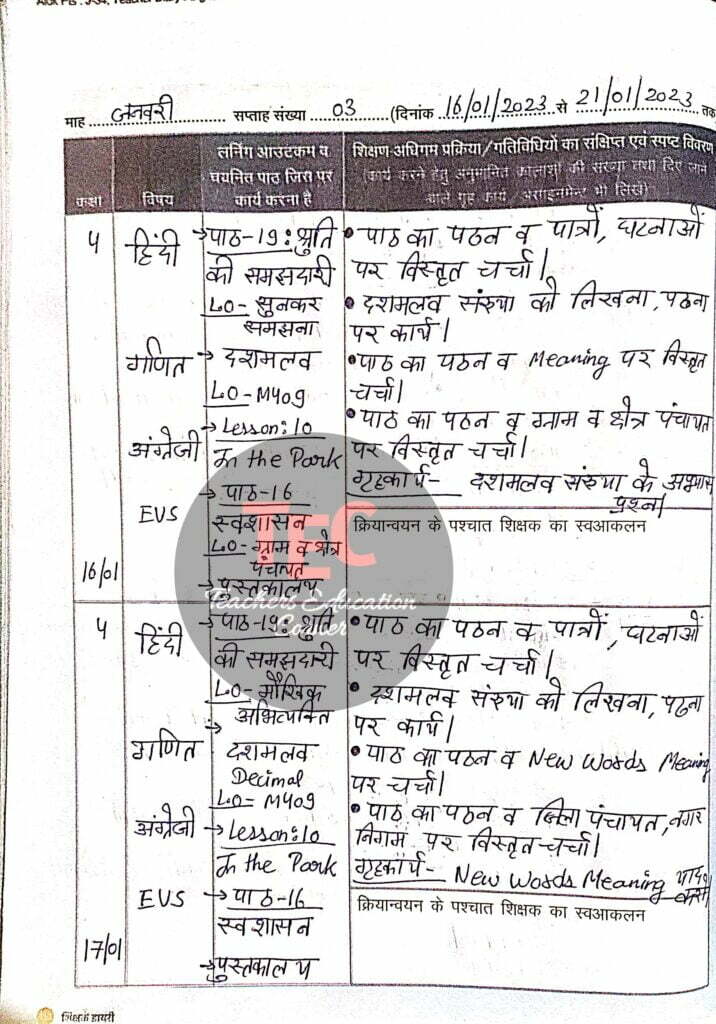 माह जनवरी सप्ताह संख्या 03 (दिनांक 16/01/2023 से 21/01/2023 तक
कक्षा
विषय
लर्निंग आउटकम व
चयनित पाठ जिस पर
कार्य करना है
शिक्षण-अधिगम प्रक्रिया/गतिविधियों का संक्षिप्त एवं स्पष्ट विवरण
(कार्य करने हेतु अनुमानित कालांशों की संख्या तथा दिए जाने
वाले गृह कार्य / असाइनमेन्ट भी लिखें)
५
16/01
हिंदी
गणित
अंग्रेजी
EVS
→पाठ-19: श्रुति
की समझदारी
LO- सुनकर
समझना
→ दशमलव
LO- M409
→ Lesson: 10
In the Park
→ पाठ-16
स्वशासन
LO- ग्राम व क्षेत्र
पंचायत
→ पुस्तकालय
• पाठ का पठन व पात्रों, घटनाओं
पर विस्तृत चर्चा।
• दशमलव संख्या को लिखना, पढना
पर कार्य।
• पाठ का पठन व Meaning पर विस्तृत
चर्चा।
• पाठ का पठन व ग्राम व क्षेत्र पंचायत
पर विस्तृत चर्चा।
गृहकार्य- दशमलव संख्या के अभ्यास
प्रश्न।
क्रियान्वयन के पश्चात शिक्षक का स्वआकलन
TEC
Teachers Education
Corner
५
17/01
हिंदी
गणित
अंग्रेजी
EVS
→ पाठ-19: श्रुति
की समझदारी
LO- मौखिक
अभिव्यक्ति
दशमलव
Decimal
LO= M409
→ Lesson: 10
In the Park
→ पाठ-16
स्वशासन
→ पुस्तकालय
• पाठ का पठन व पात्रों, घटनाओं
पर विस्तृत चर्चा।
• दशमलव संख्या को लिखना, पढना
पर कार्य।
• पाठ का पठन व New Words Meaning
पर चर्चा।
• पाठ का पठन व जिला पंचायत, नगर
निगम पर विस्तृत चर्चा।
गृहकार्य- New Words Meaning याद
करना
क्रियान्वयन के पश्चात शिक्षक का स्वआकलन
शिक्षक डायरी